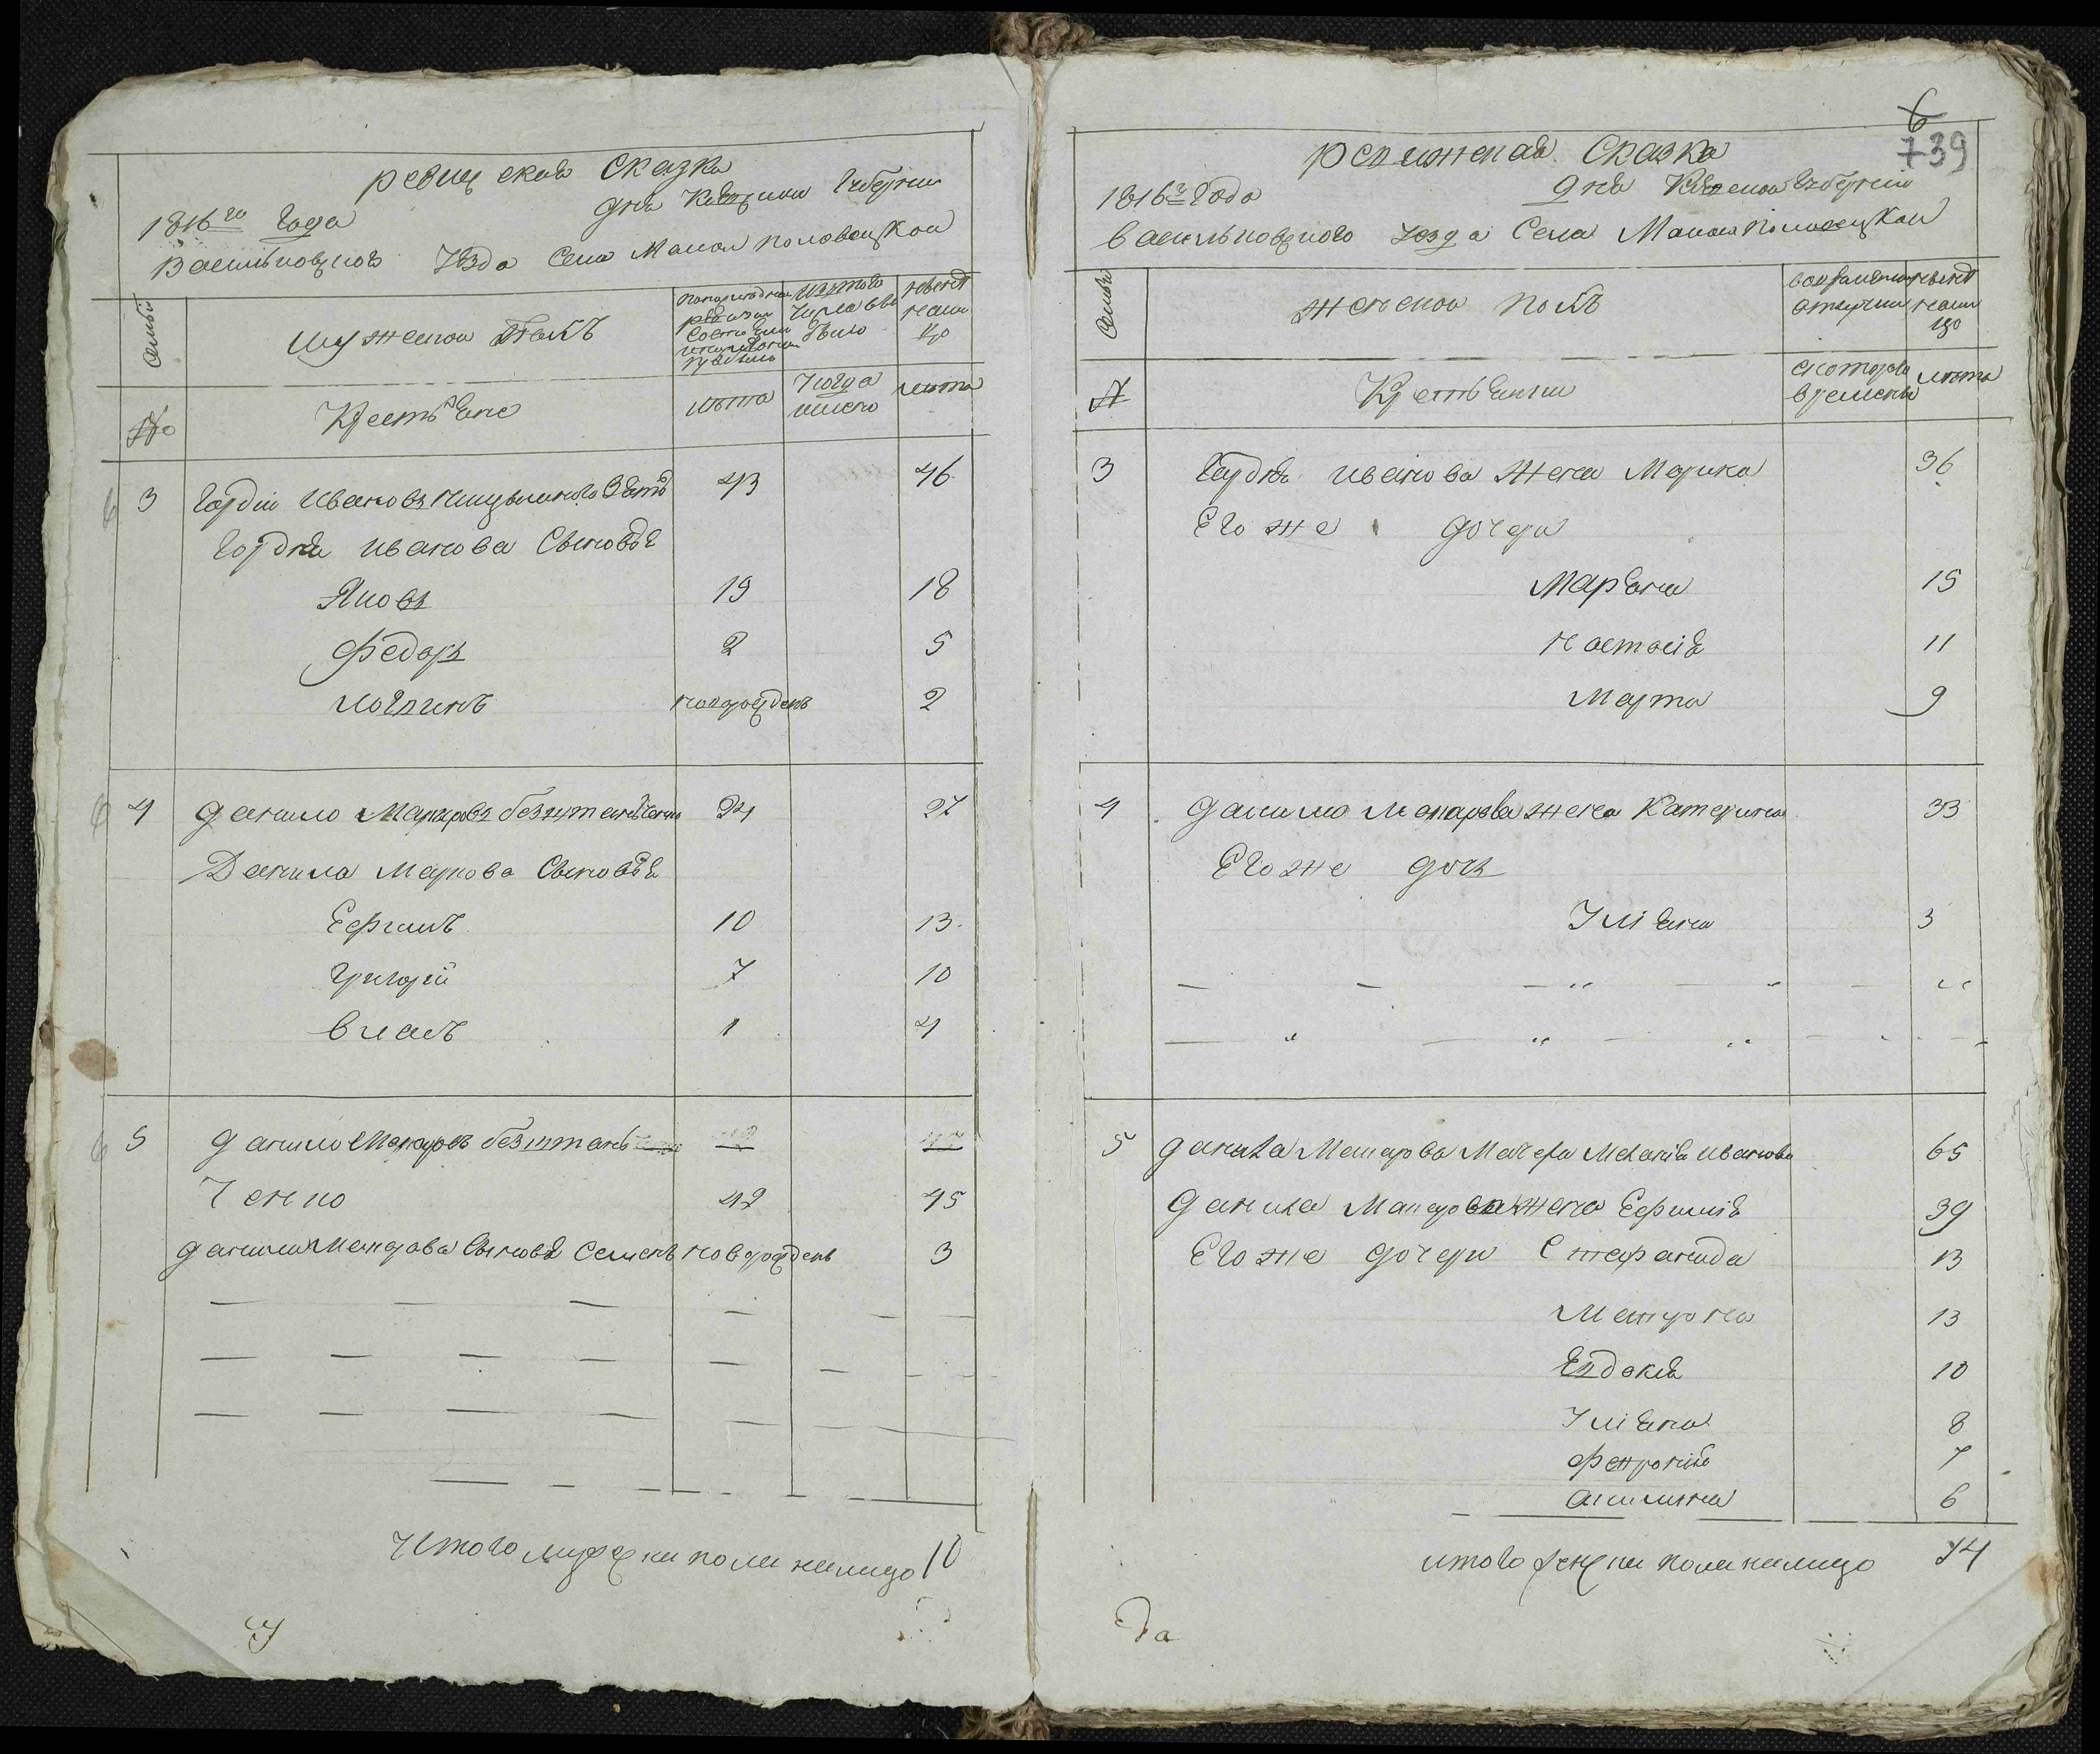 ревизская Сказка
1816го года дня Киевской Губернии
Васильковского Уезда Села Малой половецкой
Семьи
мужеской полъ
по последней ревизии состояло и после оной прибыло
Изъ того числа выбыло
ныне на лицо
№
Крестьяне
лета
Когда имено
лета
3 Гордій Ивановъ зять 43 46
Гордея иванова Сыновья
Яковъ 15 18
Федоръ 2 5
логвинъ новорожденъ 2
4 данило Макаровъ безштанченко 24 27
Данила Макарова Сыновья
Ефимъ 10 13
Григорій 7 10
власъ 1 4
5 данило Макаровъ безштань
Ченко 42 45
данила Макарова Сыновья Семенъ новорожденъ 3
Итого мужеска пола налицо 10
6
739
ревизская Сказка
1816го Года дня Киевской Губерніи
васильковского уезда Села Малой Половецкой
Семьи
женской полъ
во временной отлучке
ныне на лицо
№
Крестьянки
с которого времени
лета
3 Гордея иванова жена Марина 36
Его же дочери
Марьяна 15
настасія 11
Марта 9
4 данила Макарова жена Катерина 33
Его же дочь
Уліяна 3
5 данила Макарова Мачеха Меланія иванова 65
данила Макарова жена Ефимія 39
Его же дочери Стефанида 13
Матрона 13
Евдокія 10
Уліяна 8
Февронія 7
акилина 6
итого женска пола налицо 14
да